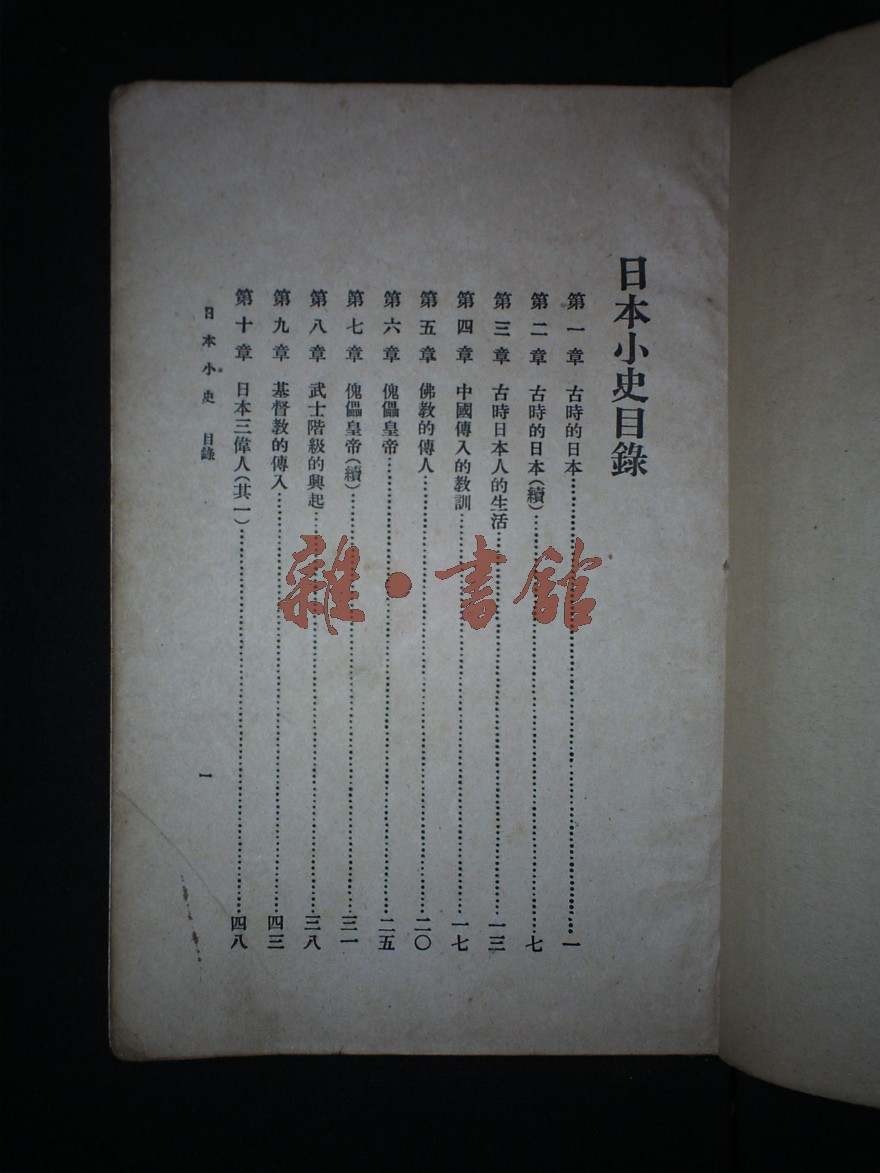 日本小史目錄
第一章 古時的日本……一
第二章 古時的日本(續)……七
第三章 古時日本人的生活……一三
第四章 中國傳入的教訓……一七
第五章 佛教的傳人……二〇
第六章 傀儡皇帝……二五
第七章 傀儡皇帝(續)……三一
第八章 武士階級的興起……三八
第九章 基督教的傳入……四三
第十章 日本三偉人(其一)……四八
日本小史 目錄
一
雜·書館